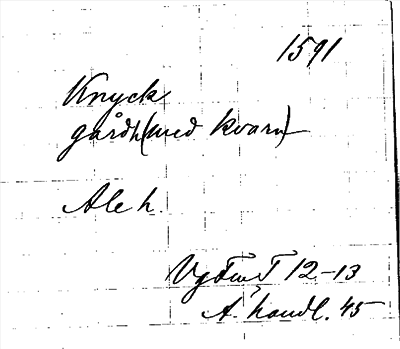 1591
Knyck
gårdh (med kvarn)
Ale h.
VgFmT 12-13
A. handl. 45